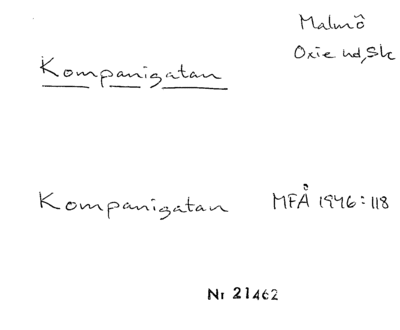 Malmö
Oxie hd, Sk
Kompanigatan
Kompanigatan MFÅ 1946:118
Nr 21462